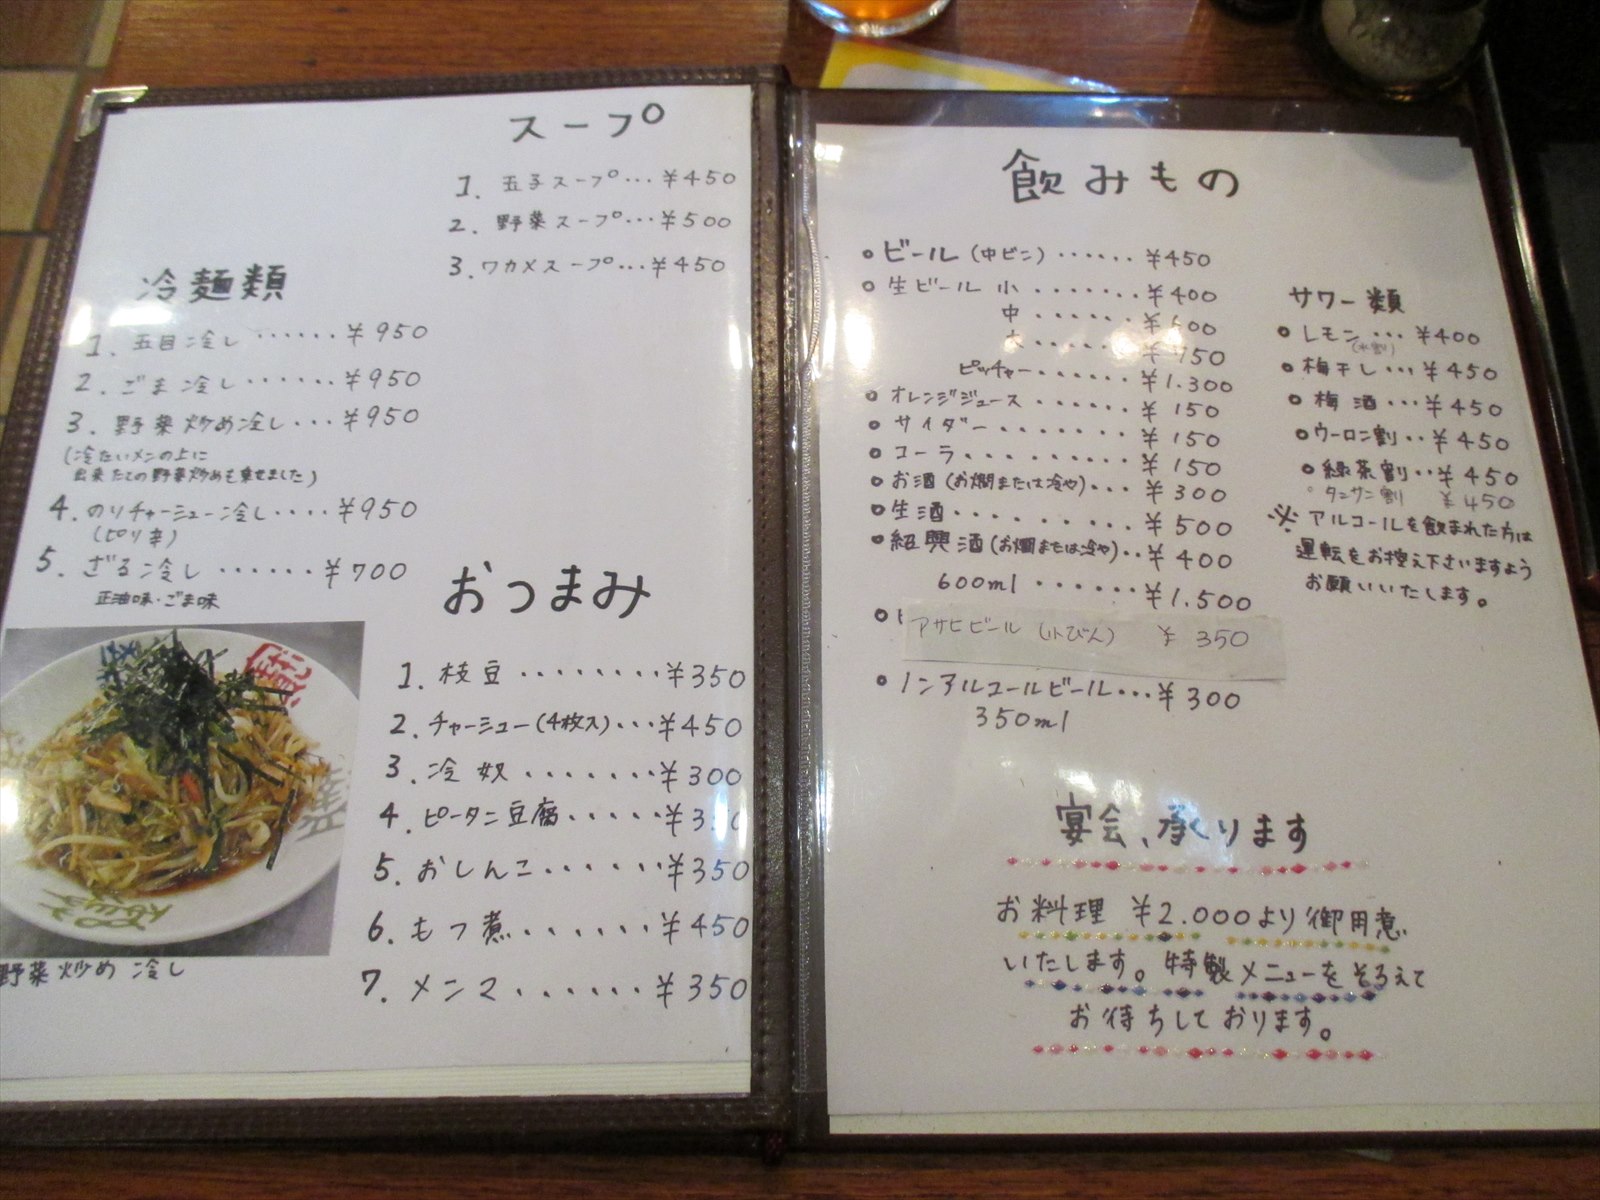 スープ
1. 玉子スープ…¥450
2. 野菜スープ…¥500
3. ワカメスープ…¥450
冷麺類
1. 五目冷し……¥950
2. ごま冷し……¥950
3. 野菜炒め冷し…¥950
(冷たいメンの上に
出来たての野菜炒めも乗せました)
4. のりチャーシュー冷し…¥950
(ピリ辛)
5. ざる冷し……¥700
正油味・ごま味
野菜炒め冷し
おつまみ
1. 枝豆……¥350
2. チャーシュー(4枚入)…¥450
3. 冷奴……¥300
4. ピータン豆腐……
5. おしんこ……¥350
6. もつ煮……¥450
7. メンマ……¥350
飲みもの
ビール(中ビン)……¥450
生ビール 小……¥400
中……¥600
大……
ピッチャー……¥1.300
オレンジジュース……¥150
サイダー……¥150
コーラ……¥150
お酒(お燗または冷や)…¥300
生酒……¥500
紹興酒(お燗または冷や)‥¥400
600ml……¥1.500
アサヒビール(小びん) ¥350
ノンアルコールビール…¥300
350ml
サワー類
レモン…¥400
(水割)
梅干し…¥450
梅酒…¥450
ウーロン割‥¥450
緑茶割‥¥450
タンサン割 ¥450
※アルコールを飲まれた方は
運転をお控え下さいますよう
お願いいたします。
宴会、承ります
お料理 ¥2.000より御用意
いたします。特製メニューをそろえて
お待ちしております。